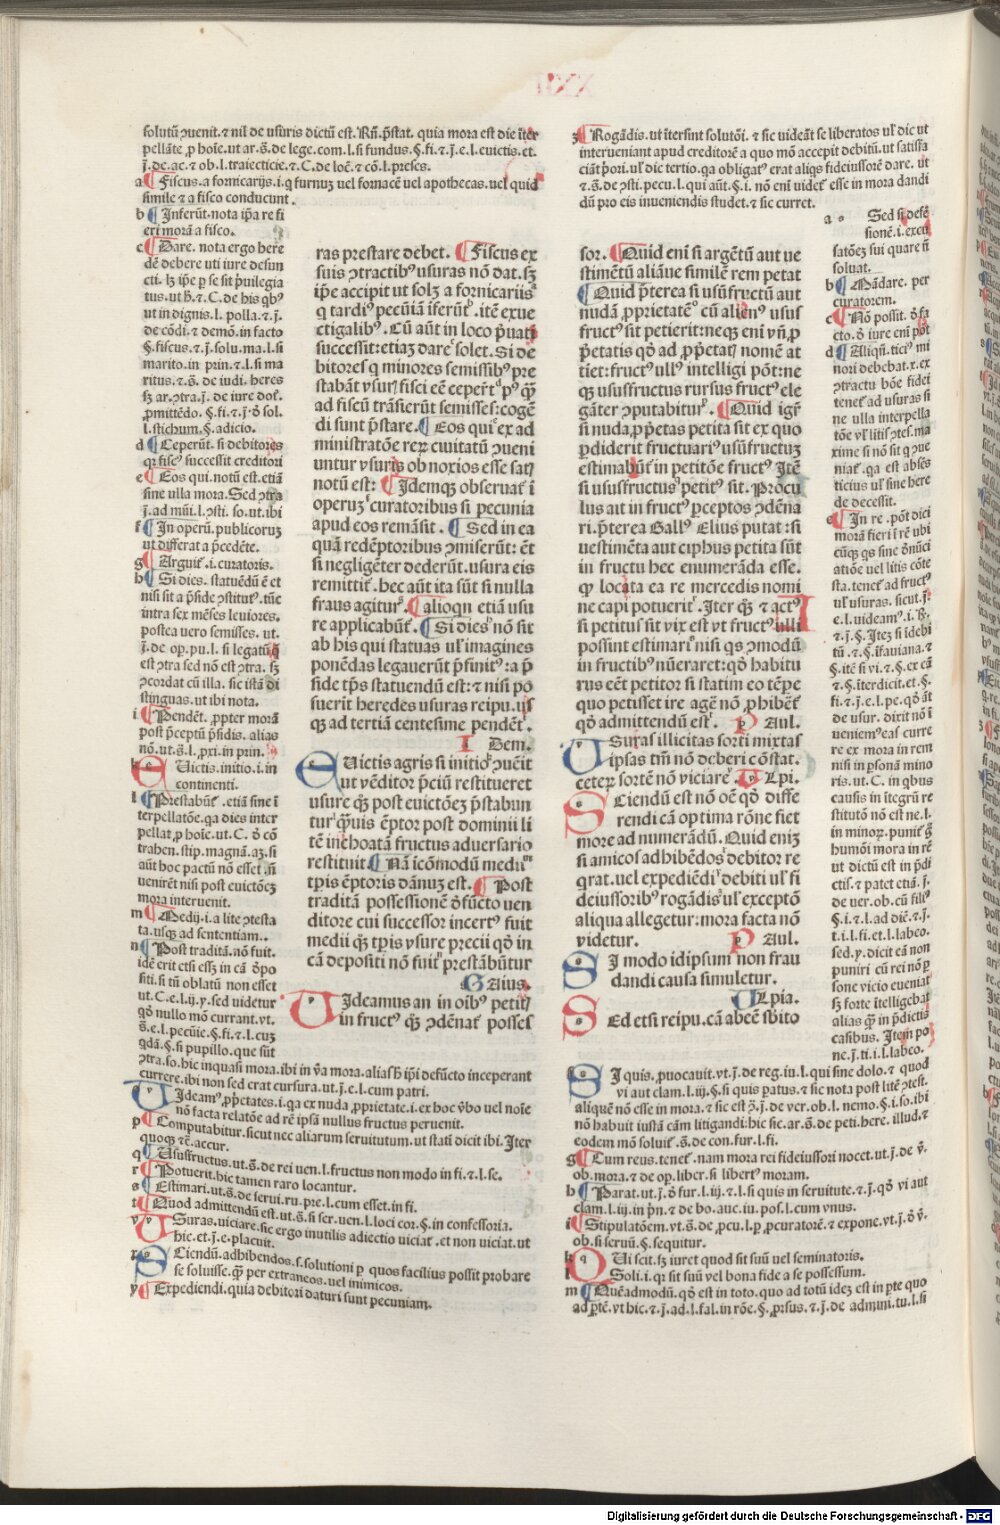 XXII
solutū ꝯuenit. ⁊ nil de usuris dictū est. Rñ. p̄stat. quia mora est die iter
pellāte ꝓ hoīe. ut ar. s̄. de lege. com. l. si fundus. §. fi. ⁊ j. e. l. euictis. et.
j. de. ac. ⁊ ob. l. traiecticie. ⁊ C. de loc̄. ⁊ cō. l. p̄ses.
a Fiscus. a fornicarijs. i. q furnuꝫ uel fornacē uel apothecas. uel quid
simile ⁊ a fisco conducunt.
b Inferūt. nota ip̄a re fi
eri morā a fisco.
c Dare. nota ergo here
dē debere uti iure defun
cti. lꝫ ip̄e ꝑ se sit p̄uilegia
tus. ut h̄. ⁊ C. de his qbꝰ
ut in dignis. l. polla. ⁊ j.
de cōdi. ⁊ demō. in facto
§. fiscus. ⁊ j. solu. ma. l. si
marito. in prin. ⁊ l. si ma
ritus. ⁊ s̄. de iudi. heres
sꝫ ar. ꝯtra. j. de iure dot̄.
ꝓmittēdo. §. fi. ⁊ j. ð sol.
l. stichum. §. adicio.
d Ceperūt. si debitores
qꝛ fiscꝰ successit creditori
e Eos qui. notū est. etiā
sine ulla mora. Sed ꝯtra
j. ad mūi. l. ꝯsti. so. ut. ibi
f In operū. publicoruꝫ
ut differat a p̄cedēte.
g Arguit̄. i. curatoris.
h Si dies. statuēdū ē et
nisi sit a p̄side ꝯstitutꝰ. tūc
intra sex mēses leuiores.
postea uero semisses. ut.
j. de op. pu. l. si legatū
est ꝯtra sed nō est ꝯtra. sꝫ
ꝯcordat cū illa. sic istā di
stinguas. ut ibi nota.
i Pendēt. ꝓpter morā
post p̄ceptū p̄sidis. alias
nō. ut. s̄. l. ꝓxi. in prin.
k Euictis. initio. i. in
continenti.
l Prestabūt̄. etiā sine ī
terpellatōe. qa dies inter
pellat ꝓ hoīe. ut. C. ð cō
trahen. stip. magnā. aꝫ. si
aūt hoc pactū nō esset. ñ
uenirēt nisi post euictōeꝫ
mora interuenit.
m Medij. i. a lite ꝯtesta
ta. usqꝫ ad sententiam.
n Post traditā. nō fuit.
idē erit etsi essꝫ in cā ðpo
siti. si tū oblatū non esset
ut. C. e. l. ij. y. sed uidetur
qð nullo mō currant. vt.
s̄. e. l. pecūie. §. fi. ⁊ l. cuꝫ
qdā. §. si pupillo. que sūt
ꝯtra. so. hic inquasi mora. ibi in v̄a mora. aliasħ ip̄i defūcto inceperant
currere. ibi non sed erat cursura. ut. j. e. l. cum patri.
Uideamꝰ. ꝓp̄etates. i. qa ex nuda ꝓprietate. i. ex hoc v̄bo uel noīe
nō facta relatōe ad rē ipsā nullus fructus peruenit.
p Computabitur. sicut nec aliarum seruitutum. ut statī dicit ibi. Iter
quoqꝫ ⁊c̄. accur.
q Ususfructus. ut. s̄. de rei uen. l. fructus non modo in fi. ⁊ l. se.
r Potuerit. hic tamen raro locantur.
s Estimari. ut. s̄. de serui. ru. pre. l. cum esset. in fi.
t Quod admittendū est. ut. s̄. si ser. uen. l. loci cor. §. in confessoria.
v Usuras. uiciare. sic ergo inutilis adiectio uiciat̄. et non uiciat. ut
hic. et. j. e. placuit.
x Sciendū. adhibendos. s. solutioni ꝑ quos facilius possit probare
se soluisse. qꝫ per extraneos. uel inimicos.
y Expediendi. quia debitori daturi sunt pecuniam.
ras prestare debet. Fiscus ex
suis ꝯtractibꝰ usuras nō dat. sꝫ
ip̄e accipit ut solꝫ a fornicariis
q tardiꝰ pecūiā īferūt̄. itē exue
ctigalibꝰ. Cū aūt in loco p̄uati
successit: etiaꝫ dare solet. Si de
bitores q minores semissibꝰ pre
stabāt vsur̄ fisci eē ceper̄t pꝰ q̄ꝫ
ad fiscū trāsierūt semisses: cogē
di sunt p̄stare. Eos qui ex ad
ministratōe reꝝ ciuitatū ꝯueni
untur vsuris obnoxios esse satꝭ
notū est: Idemqꝫ obseruat̄ ī
operuꝫ curatoribus si pecunia
apud eos remāsit. Sed in ea
quā redēptoribus ꝯmiserūt: et
si negligēter dederūt. usura eis
remittit̄. hec aūt ita sūt si nulla
fraus agitur. alioqn etiā usu
re applicabūt̄. Si dies nō sit
ab his qui statuas ul̄ imagines
ponēdas legauerūt p̄finitꝰ: a p̄
side tp̄s statuendū est: ⁊ nisi po
suerit heredes usuras reipu. ijs
qꝫ ad tertiā centesime pendēt̄.
Idem.
Euictis agris si initio ꝯuēit
ut vēditor p̄ciū restitueret
usure qꝫ post euictōeꝫ p̄stabun
tur q̄ꝫuis ēptor post dominii li
tē inchoatā fructus aduersario
restituit. Nā īcōmodū medii
tp̄is ēptoris dānuꝫ est. Post
traditā possessionē ðfūcto uen
ditore cui successor incertꝰ fuit
medii qꝫ tp̄is vsure precii qð in
cā depositi nō fuit prestābūtur
Gaius.
Uideamus an in oībꝰ petitꝭ
in fructꝰ qꝫ ꝯdēnat̄ posses
sor. Quid enī si argētū aut ue
stimētū aliāue similē rem petat
Quid p̄terea si usūfructū aut
nudā ꝓprietatē cū alienꝰ usus
fructꝰ sit petierit: neqꝫ enī vn̄. ꝓ
p̄etatis qð ad ꝓp̄etatꝭ nomē at
tiet: fructꝰ ullꝰ intelligi pōt: ne
qꝫ ususfructus rursus fructꝰ ele
gāter ꝯputabitur. Quid igr̄
si nuda ꝓp̄etas petita sit ex quo
ꝓdiderit fructuariꝰ usūfructuꝫ
estimabūt̄ in petitōe fructꝰ Itē
si ususfructus petitꝰ sit. Procu
lus ait in fructꝰ p̄ceptos ꝯdēna
ri. p̄terea Gallꝰ Elius putat: si
uestimēta aut ciphus petita sūt
in fructu hec enumerāda esse.
qꝫ locata ea re mercedis nomi
ne capi potuerit. Iter qꝫ ⁊ actꝰ
si petitus sit vix est vt fructꝰ ulli
possint estimari nisi qs ꝯmodū
in fructibꝰ nūeraret: qð habitu
rus eēt petitor si statim eo tēpe
quo petisset ire agē nō ꝓhibet̄
qð admittendū est. Paul.
Usuras illicitas sorti mixtas
ipsas tm̄ nō deberi cōstat.
ceteꝝ sortē nō viciare. Ulpi.
Sciendū est nō oē qð diffe
rendi cā optima rōne fiet
more ad numerādū. Quid eniꝫ
si amicos adhibēdos debitor re
qrat. uel expediēdi debiti ul̄ fi
deiussoribꝰ rogādis ul̄ exceptō
aliqua allegetur: mora facta nō
videtur. Paul.
Si modo id ipsum non frau
dandi causa simuletur.
Ulpia.
Sed etsi reipu. cā abeē sb̄ito
z Rogādis. ut ītersint solutōi. ⁊ sic uideāt se liberatos ul̄ dic ut
interueniant apud creditorē a quo mō accepit debitū. ut satisfa
ciāt p̄ori. ul̄ dic tertio. qa obligatꝰ erat aliqs fideiussorē dare. ut
⁊ s̄. de ꝯsti. pecu. l. qui aūt. §. i. nō enī uidet̄ esse in mora dandi
dū pro eis inueniendis studet. ⁊ sic curret.
a Sed si defē
sionē. i. excu
satōeꝫ sui quare ñ
soluat.
b Mādare. per
curatorem.
c Nō possit. ð fa
cto. ð iure enī pōt
d Aliqn̄. ticiꝰ mi
nori debebat. x. ex
ꝯtractu bōe fidei
tenet̄ ad usuras si
ne ulla interpella
tōe ul̄ litis ꝯtes. ma
xime si nō sit q ꝯue
niat̄. qa est absēs
ticius ul̄ sine here
de decessit.
e In re. pōt dici
morā fieri ī rē ubi
cūqꝫ qs sine ðnūci
atiōe uel litis cōte
sta. tenet̄ ad fructꝰ
ul̄ usuras. sicut. j.
e. l. uideamꝰ. i. R̄.
⁊. j. §. Iteꝫ si idebi
tū. ⁊ §. ī fauiana. ⁊
§. itē si vi. ⁊ §. ex cā
⁊ §. iterdicit. et. §.
fi. ⁊ j. e. l. pe. qð āt
de usur. dixit nō ī
ueniemꝰ eas curre
re ex mora in rem
nisi in psonā mino
ris. ut. C. in qbus
causis in ītegrū re
stitutō nō est ne. l.
in minoꝝ. punit̄ g̊
humōi mora in rē
ut dictū est in p̄di
ctis. ⁊ patet etiā. j.
de ver. ob. cū filiꝰ
§. i. ⁊ l. ad diē. ⁊ j.
t. i. l. fi. et. l. labeo.
sed. y. dicit eā non
puniri cū rei nō ꝑ
sone vicio eueniat
sꝫ forte ītelligebat
alias q̄ꝫ in p̄dictis
casibus. Item po
ne. j. ti. i. l. labeo.
f Si quis. ꝓuocauit. vt. j. de reg. iu. l. qui sine dolo. ⁊ quod
vi aut clam. l. iij. §. si quis ꝑatus. ⁊ sic nota post litē ꝯtest.
aliquē nō esse in mora. ⁊ sic est ꝯ̄. j. de ver. ob. l. nemo. §. i. so. ibi
nō habuit iustā cām litigandi: hic sic. ar. s̄. de peti. here. illud. ⁊
eodem mō soluit̄. s̄. de con. fur. l. fi.
g Cum reus. tenet̄. nam mora rei fideiussori nocet. ut. j. de v̄.
ob. mora. ⁊ de op. liber. si libertꝰ moram.
h Parat. ut. j. ð fur. l. iij. ⁊ l. si quis in seruitute. ⁊ j. qð vi aut
clam. l. iij. in p̄n. ⁊ de bo. auc. iu. pos. l. cum vnus.
i Stipulatōem. vt. s̄. de ꝓcu. l. ꝑ ꝓcuratorē. ⁊ expone. vt. j. ð v̄.
ob. si seruū. §. sequitur.
k Qui scit. sꝫ iuret quod sit suū uel seminatoris.
l Soli. i. qꝛ sit suū vel bona fide a se possessum.
m Quēadmodū. qð est in toto. quo ad totū ideꝫ est in pte quo
ad ptē. vt hic. ⁊. j. ad. l. fal. in rōe. §. ꝓrsus. ⁊ j. de admini. tu. l. si
Digitalisierung gefördert durch die Deutsche Forschungsgemeinschaft - DFG